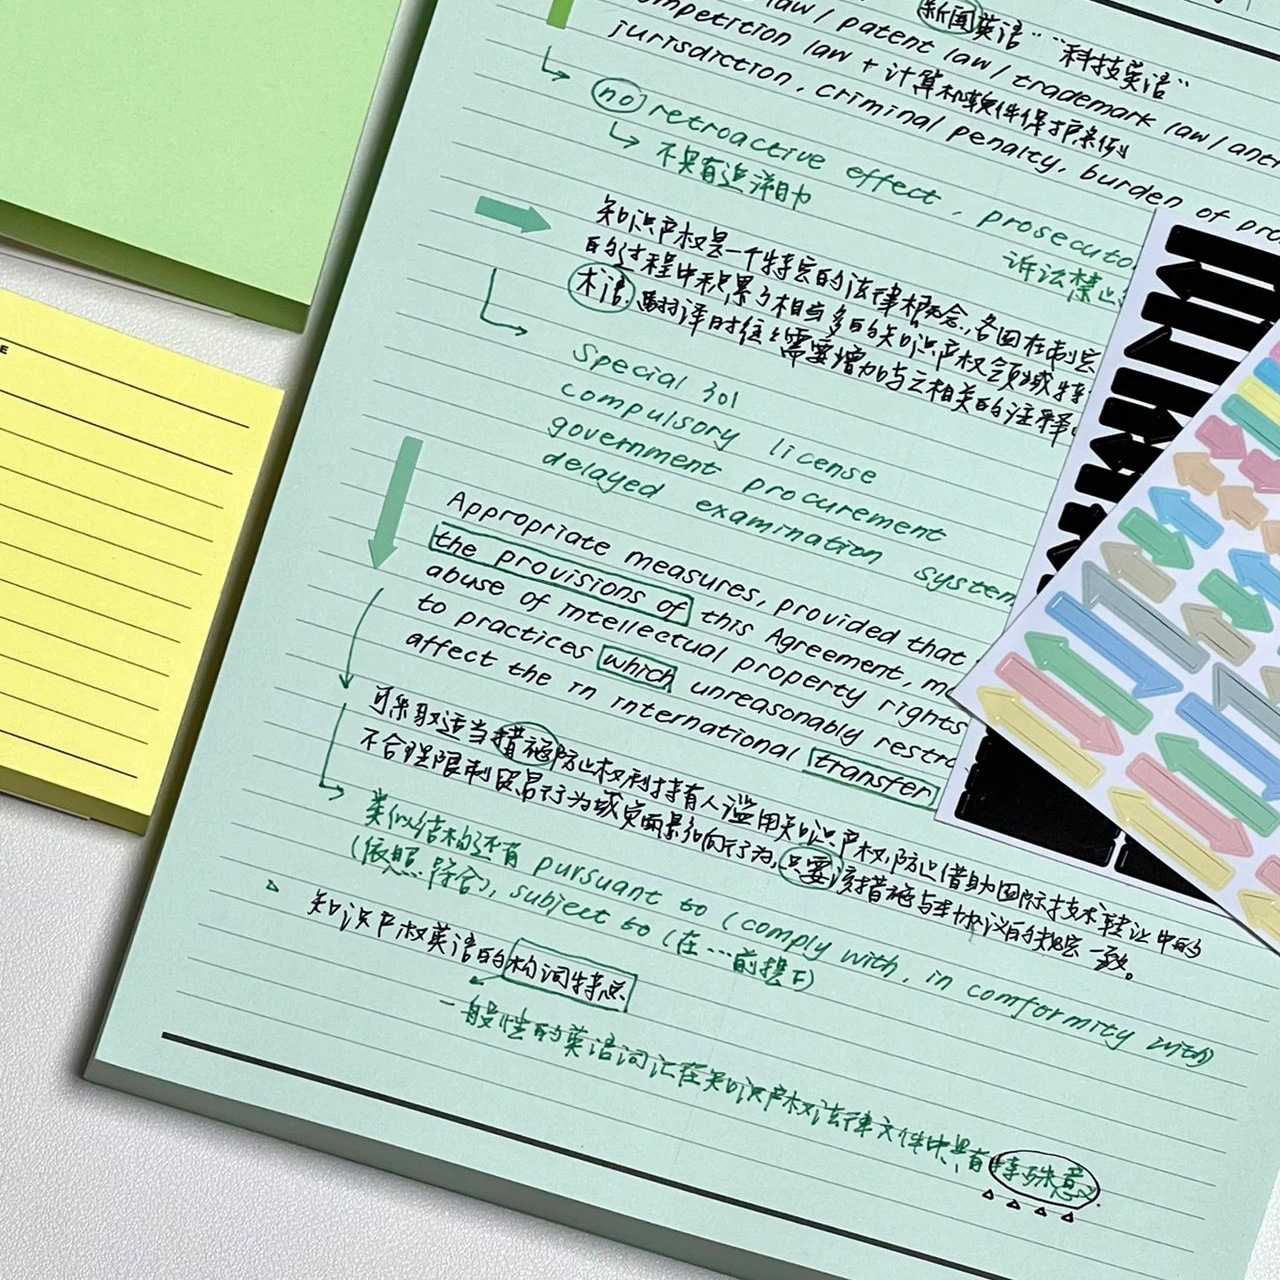 新闻英语" "科技英语"
law / patent law / trademark law / anti
mpetition law + 计算机软件保护条例
jurisdiction, criminal penalty, burden of pro
no retroactive effect, prosecuto
不具有追溯力
诉讼禁止
知识产权是一个特定的法律概念,各国在制定
的过程中积累了相当多的知识产权领域特
术语.翻译时往往需要增加与之相关的注释。
Special 301
compulsory license
government procurement
delayed examination system
Appropriate measures, provided that
the provisions of this Agreement, m
abuse of intellectual property rights
to practices which unreasonably restra
affect the in international transfer
可采取适当措施防止权利持有人滥用知识产权,防止借助国际技术转让中的
不合理限制贸易行为或灾两影响行为,只要该措施与本协议的规定一致。
类似结构还有 pursuant to (comply with, in comformity with)
(依照 符合), subject to (在…前提下)
知识产权英语的构词特点
一般性的英语词汇在知识产权法律文件中具有特殊意义.
E